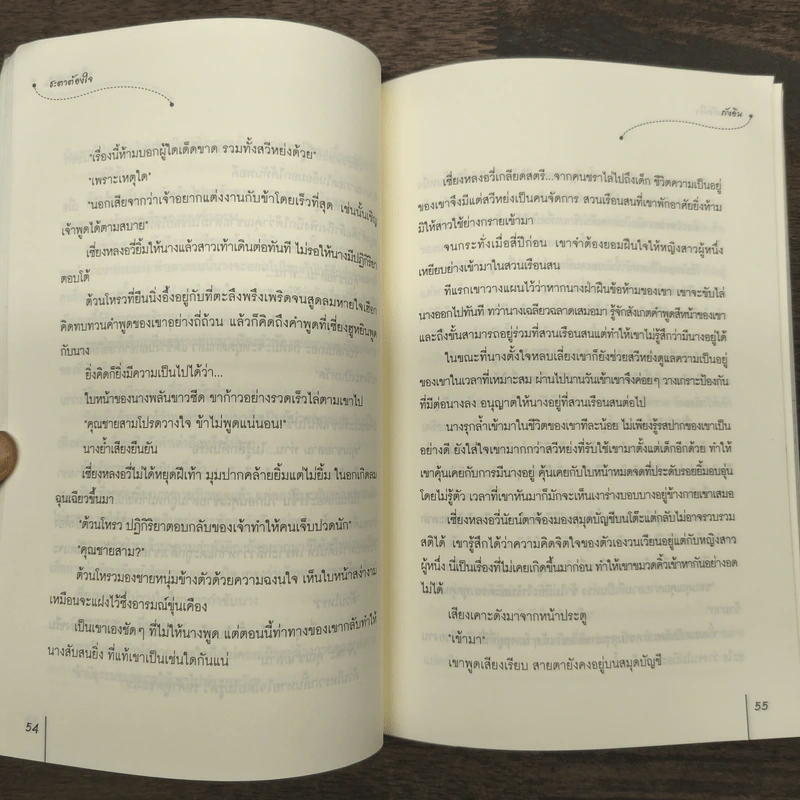 ชะตาต้องใจ
"เรื่องนี้ห้ามบอกผู้ใดเด็ดขาด รวมทั้งสวีหย่งด้วย"
"เพราะเหตุใด"
"นอกเสียจากว่าเจ้าอยากแต่งงานกับข้าโดยเร็วที่สุด เช่นนั้นเชิญ
เจ้าพูดได้ตามสบาย"
เซี่ยงหลงอวี่ยิ้มให้นางแล้วสาวเท้าเดินต่อทันที ไม่รอให้นางมีปฏิกิริยา
ตอบโต้
ต้วนโหรวที่ยืนนิ่งอึ้งอยู่กับที่ตะลึงพรึงเพริดจนสูดลมหายใจเฮือก
คิดทบทวนคำพูดของเขาอย่างถี่ถ้วน แล้วก็คิดถึงคำพูดที่เซี่ยงฮูหยินพูด
กับนาง
ยิ่งคิดก็ยิ่งมีความเป็นไปได้ว่า...
ใบหน้าของนางพลันขาวซีด ขาก้าวอย่างรวดเร็วไล่ตามเขาไป
"คุณชายสามโปรดวางใจ ข้าไม่พูดแน่นอน!"
นางย้ำเสียงยืนยัน
เซี่ยงหลงอวี่ไม่ได้หยุดฝีเท้า มุมปากคล้ายยิ้มแต่ไม่ยิ้ม ในอกเกิดลม
ฉุนเฉียวขึ้นมา
"ต้วนโหรว ปฏิกิริยาตอบกลับของเจ้าทำให้คนเจ็บปวดนัก"
"คุณชายสาม?"
ต้วนโหรวมองชายหนุ่มข้างตัวด้วยความฉงนใจ เห็นใบหน้าสง่างาม
เหมือนจะแฝงไว้ซึ่งอารมณ์ขุ่นเคือง
เป็นเขาเองชัดๆ ที่ไม่ให้นางพูด แต่ตอนนี้ท่าทางของเขากลับทำให้
นางสับสนยิ่ง ที่แท้เขาเป็นเช่นใดกันแน่
54
กังอิน
เซี่ยงหลงอวี่เกลียดสตรี...จากคนชราไล่ไปถึงเด็ก ชีวิตความเป็นอยู่
ของเขาจึงมีแต่สวีหย่งเป็นคนจัดการ สวนเรือนสนที่เขาพักอาศัยยิ่งห้าม
มิให้สาวใช้ย่างกรายเข้ามา
จนกระทั่งเมื่อสี่ปีก่อน เขาจำต้องยอมฝืนใจให้หญิงสาวผู้หนึ่ง
เหยียบย่างเข้ามาในสวนเรือนสน
ทีแรกเขาวางแผนไว้ว่าหากนางฝ่าฝืนข้อห้ามของเขา เขาจะขับไล่
นางออกไปทันที ทว่านางเฉลียวฉลาดเสมอมา รู้จักสังเกตคำพูดสีหน้าของเขา
และถึงขั้นสามารถอยู่ร่วมที่สวนเรือนสนแต่ทำให้เขาไม่รู้สึกว่ามีนางอยู่ได้
ในขณะที่นางตั้งใจหลบเลี่ยงเขาก็ยังช่วยสวีหย่งดูแลความเป็นอยู่
ของเขาในเวลาที่เหมาะสม ผ่านไปนานวันเข้าเขาจึงค่อยๆ วางเกราะป้องกัน
ที่มีต่อนางลง อนุญาตให้นางอยู่ที่สวนเรือนสนต่อไป
นางรุกล้ำเข้ามาในชีวิตของเขาทีละน้อย ไม่เพียงรู้รสปากของเขาเป็น
อย่างดี ยังใส่ใจเขามากกว่าสวีหย่งที่รับใช้เขามาตั้งแต่เด็กอีกด้วย ทำให้
เขาคุ้นเคยกับการมีนางอยู่ คุ้นเคยกับใบหน้าหมดจดที่ประดับรอยยิ้มอบอุ่น
โดยไม่รู้ตัว เวลาที่เขาหันมาก็มักจะเห็นเงาร่างบอบบางอยู่ข้างกายเขาเสมอ
เซี่ยงหลงอวี่นัยน์ตาจ้องมองสมุดบัญชีบนโต๊ะแต่กลับไม่อาจรวบรวม
สติได้ เขารู้สึกได้ว่าความคิดจิตใจของตัวเองวนเวียนอยู่แต่กับหญิงสาว
ผู้หนึ่ง นี่เป็นเรื่องที่ไม่เคยเกิดขึ้นมาก่อน ทำให้เขาขมวดคิ้วเข้าหากันอย่างอด
ไม่ได้
เสียงเคาะดังมาจากหน้าประตู
"เข้ามา"
เขาพูดเสียงเรียบ สายตายังคงอยู่บนสมุดบัญชี
55